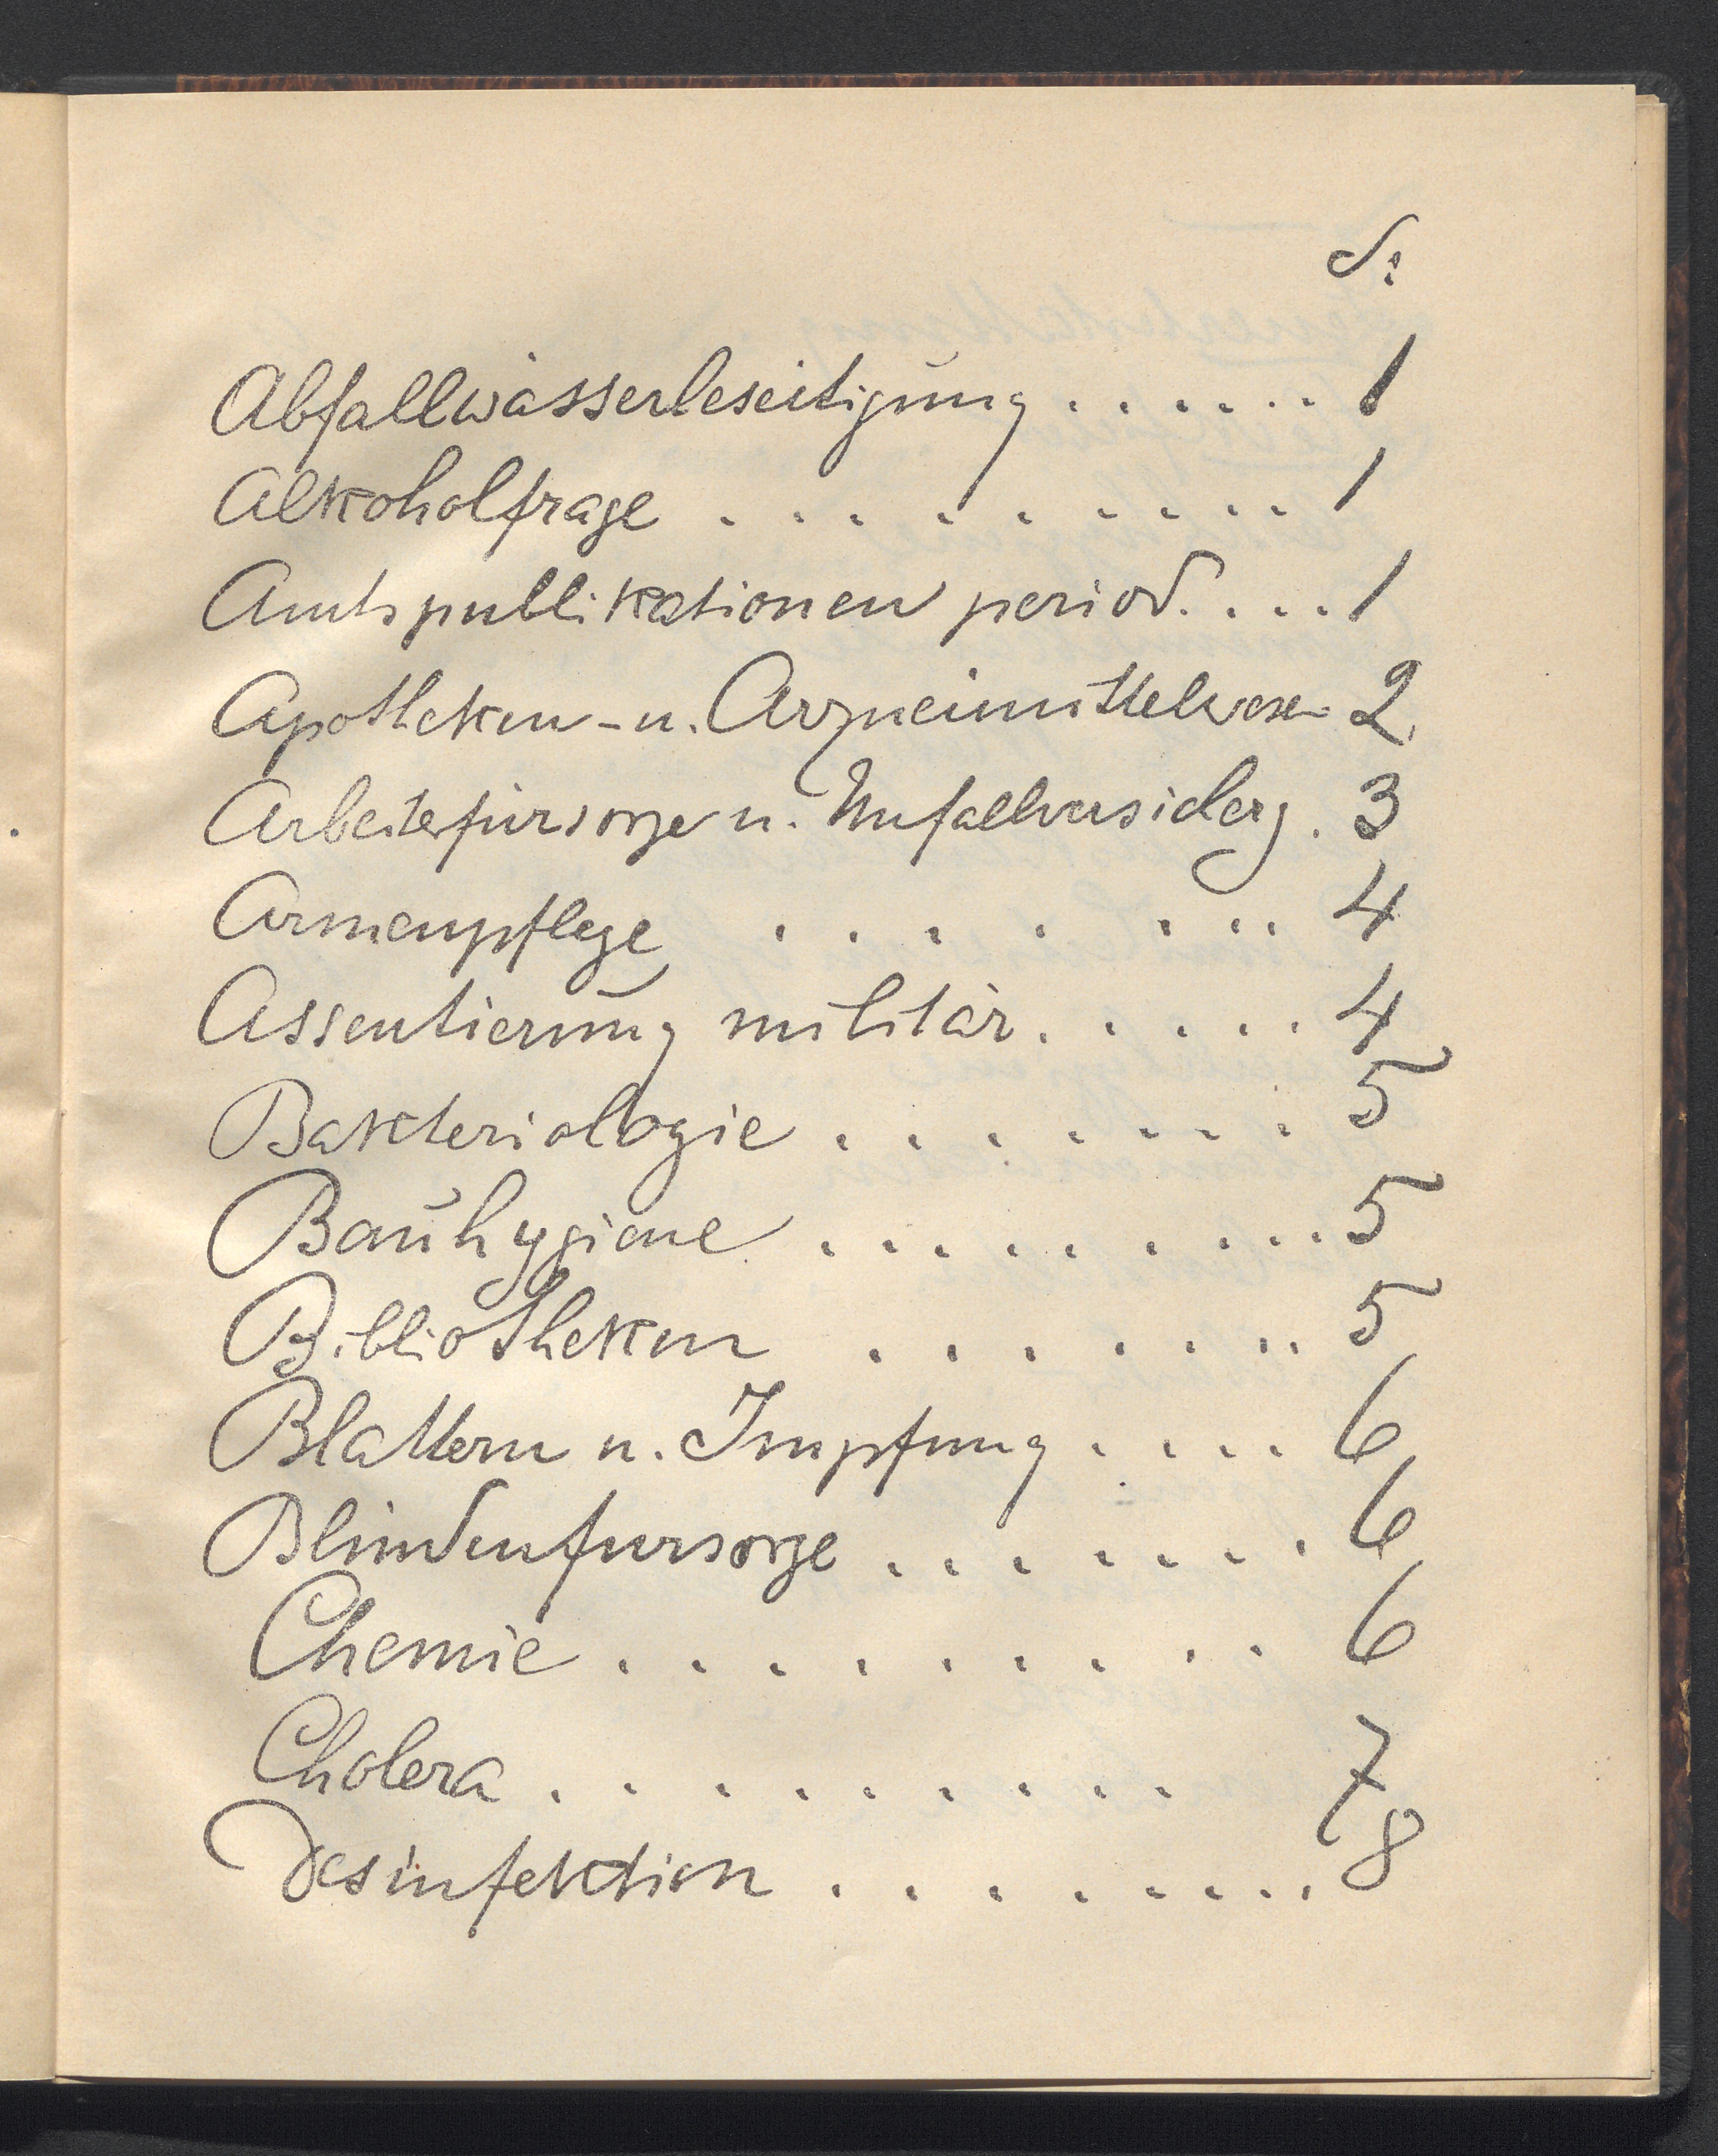 S:
Abfallwässerbeseitigung . . . . . . . 1
Alkoholfrage . . . . . . . . . . 1
Amtspublikationen period. . . . 1
Apotheken-u. Arzneimittelwesen 2
Arbeiterfürsorge u. Unfallversicherg. 3
Armenpflege . . . . . . . 4
Assentierung militär. . . . . 4
Bakteriologie . . . . . . . . 5
Bauhygiene . . . . . . . . . . 5
Bibliotheken . . . . . . . . 5
Blattern u. Impfung . . . . 6
Blindenfursorge . . . . . . . . 6
Chemie . . . . . . . . . 6
Cholera . . . . . . . . . 7
Desinfektion . . . . . . . . . 8